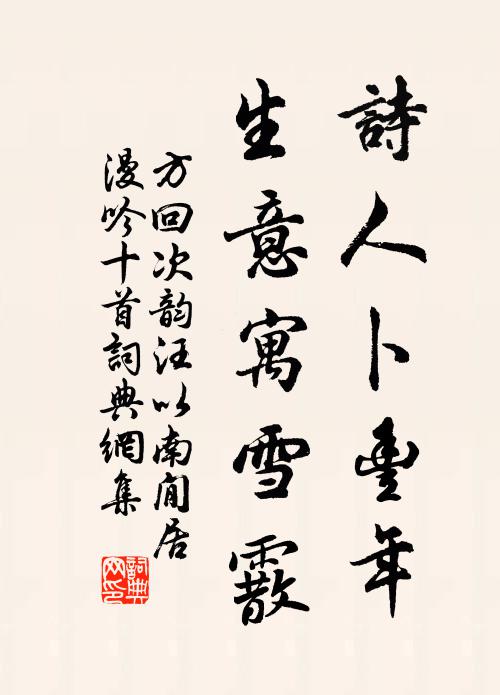 詩人卜豐年
生意寓雪霰
方回次韵汪以南閒居
漫吟十首詞典網集
詞典网印